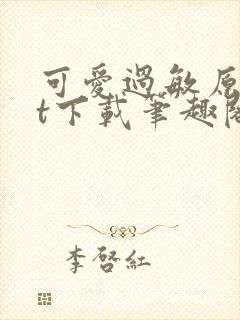 可愛過敏原
t下載筆趣閣
李啓紅